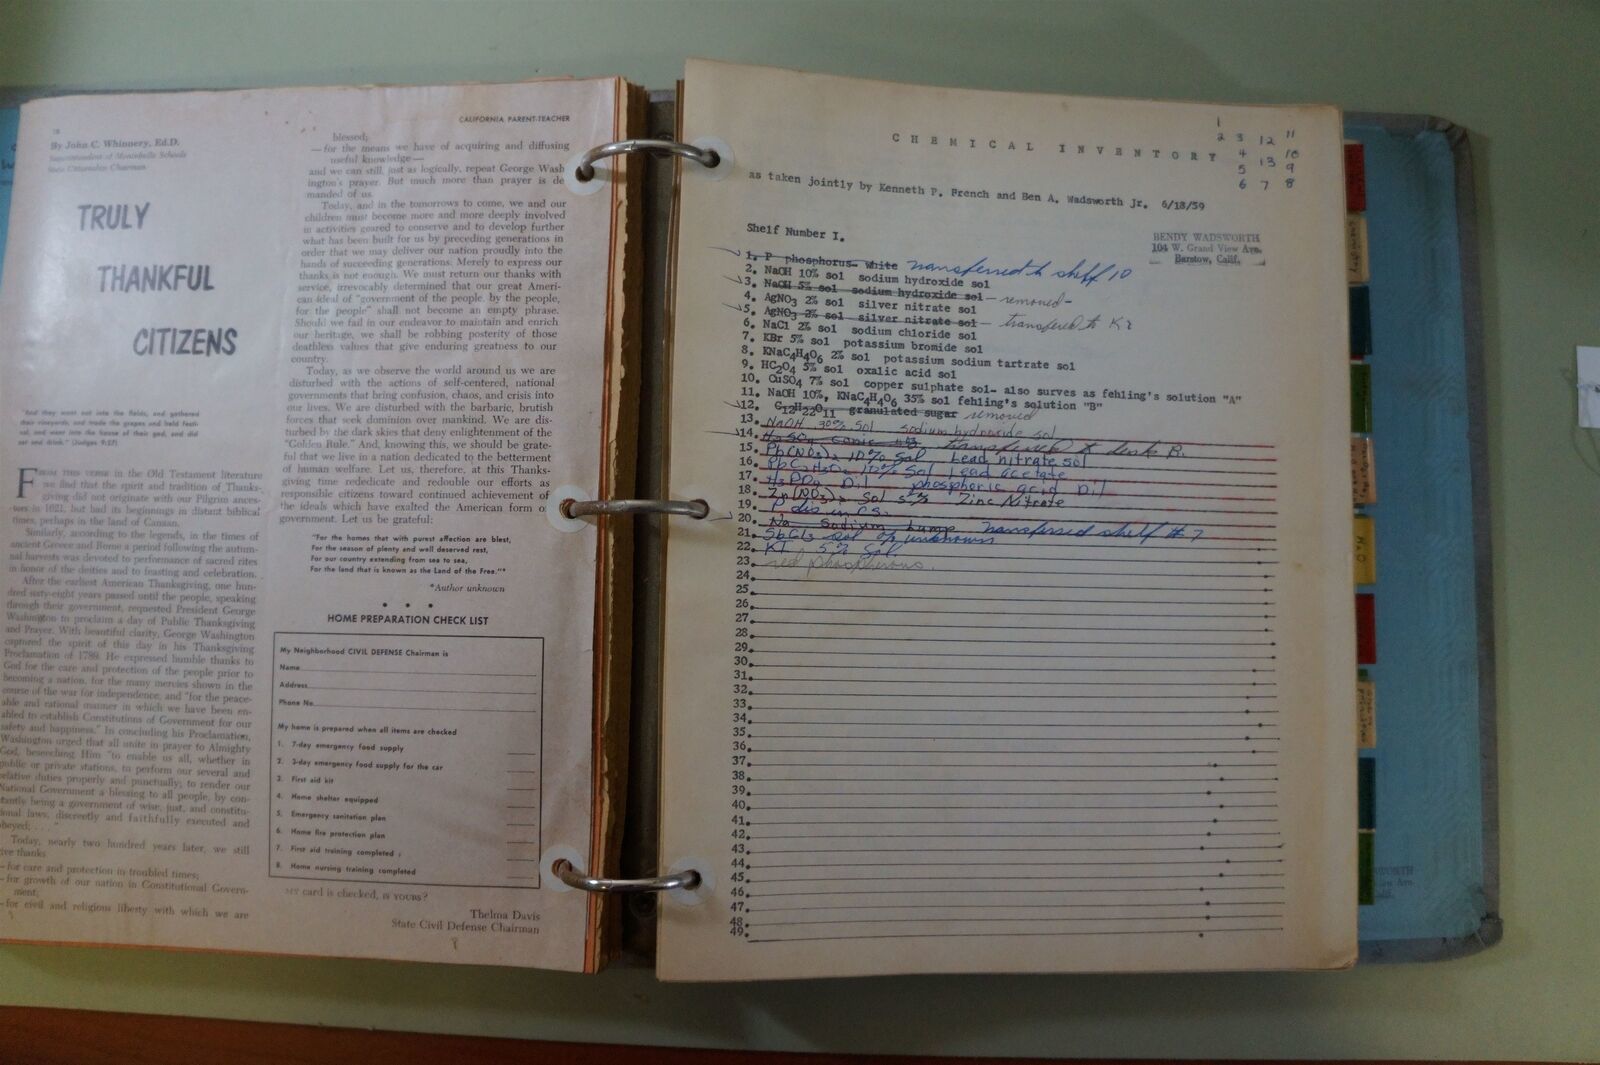 18
By John C. Whinnery, Ed.D.
Superintendent of Montebello Schools
State Citizenship Chairman
TRULY
THANKFUL
CITIZENS
"And they went out into the fields, and gathered
their vineyards, and trode the grapes and held festi-
val, and went into the house of their god, and did
eat and drink." (Judges 9:27)
FROM THIS VERSE in the Old Testament literature
we find that the spirit and tradition of Thanks-
giving did not originate with our Pilgrim ances-
tors in 1621, but had its beginnings in distant biblical
times, perhaps in the land of Canaan.
Similarly, according to the legends, in the times of
ancient Greece and Rome a period following the autum-
nal harvests was devoted to performance of sacred rites
in honor of the deities and to feasting and celebration.
After the earliest American Thanksgiving, one hun-
dred sixty-eight years passed until the people, speaking
through their government, requested President George
Washington to proclaim a day of Public Thanksgiving
and Prayer. With beautiful clarity, George Washington
captured the spirit of this day in his Thanksgiving
Proclamation of 1789. He expressed humble thanks to
God for the care and protection of the people prior to
becoming a nation, for the many mercies shown in the
course of the war for independence, and "for the peace-
able and rational manner in which we have been en-
abled to establish Constitutions of Government for our
safety and happiness." In concluding his Proclamation,
Washington urged that all unite in prayer to Almighty
God, beseeching Him "to enable us all, whether in
public or private stations, to perform our several and
relative duties properly and punctually; to render our
National Government a blessing to all people, by con-
stantly being a government of wise, just, and constitu-
tional laws, discreetly and faithfully executed and
obeyed; . . ."
Today, nearly two hundred years later, we still
give thanks
—for care and protection in troubled times;
—for growth of our nation in Constitutional Govern-
ment;
—for civil and religious liberty with which we are
CALIFORNIA PARENT-TEACHER
blessed;
—for the means we have of acquiring and diffusing
useful knowledge—
and we can still, just as logically, repeat George Wash
ington's prayer. But much more than prayer is de
manded of us.
Today, and in the tomorrows to come, we and our
children must become more and more deeply involved
in activities geared to conserve and to develop further
what has been built for us by preceding generations in
order that we may deliver our nation proudly into the
hands of succeeding generations. Merely to express our
thanks is not enough. We must return our thanks with
service, irrevocably determined that our great Ameri-
can ideal of "government of the people, by the people,
for the people" shall not become an empty phrase.
Should we fail in our endeavor to maintain and enrich
our heritage, we shall be robbing posterity of those
deathless values that give enduring greatness to our
country.
Today, as we observe the world around us we are
disturbed with the actions of self-centered, national
governments that bring confusion, chaos, and crisis into
our lives. We are disturbed with the barbaric, brutish
forces that seek dominion over mankind. We are dis-
turbed by the dark skies that deny enlightenment of the
"Golden Rule." And, knowing this, we should be grate-
ful that we live in a nation dedicated to the betterment
of human welfare. Let us, therefore, at this Thanks-
giving time rededicate and redouble our efforts as
responsible citizens toward continued achievement of
the ideals which have exalted the American form o
government. Let us be grateful:
"For the homes that with purest affection are blest,
For the season of plenty and well deserved rest,
For our country extending from sea to sea,
For the land that is known as the Land of the Free."*
*Author unknown
HOME PREPARATION CHECK LIST
My Neighborhood CIVIL DEFENSE Chairman is
Name
Address
Phone No.
My home is prepared when all items are checked
1. 7-day emergency food supply
2. 3-day emergency food supply for the car
3. First aid kit
4. Home shelter equipped
5. Emergency sanitation plan
6. Home fire protection plan
7. First aid training completed
8. Home nursing training completed
MY card is checked, IS YOURS?
Thelma Davis
State Civil Defense Chairman
8
CHEMICAL INVENTORY
1
2 3 12 11
4 13 10
5 9
6 7 8
as taken jointly by Kenneth P. French and Ben A. Wadsworth Jr. 6/18/59
Shelf Number I.
BENDY WADSWORTH
104 W. Grand View Ave.
Barstow, Calif.
1. P phosphorus- white transferred to shelf 10
2. NaOH 10% sol sodium hydroxide sol
3. NaOH 5% sol sodium hydroxide sol - removed-
4. AgNO3 2% sol silver nitrate sol
5. AgNO3 2% sol silver nitrate sol - transfered to K2
6. NaCl 2% sol sodium chloride sol
7. KBr 5% sol potassium bromide sol
8. KNaC4H4O6 2% sol potassium sodium tartrate sol
9. HC2O4 5% sol oxalic acid sol
10. CuSO4 7% sol copper sulphate sol- also surves as fehling's solution "A"
11. NaOH 10%, KNaC4H4O6 35% sol fehling's solution "B"
12. C12H22O11 granulated sugar removed
13. NaOH 30% sol sodium hydroxide sol
14. H2SO4 Conc transfered to desk B.
15. Pb(NO3)2 10% Sol Lead nitrate sol
16. PbC2H3O2 10% Sol Lead acetate
17. H3PO4 Dil phosphoric acid Dil
18. Zn(NO3)2 Sol 5% Zinc Nitrate
19. P dis in CS2
20. Na Sodium Lump Transfered shelf #7
21. SbCl3 sol of unknown
22. KI 5% Sol.
23. red phospherous.
24.
25.
26.
27.
28.
29.
30.
31.
32.
33.
34.
35.
36.
37.
38.
39.
40.
41.
42.
43.
44.
45.
46.
47.
48.
49.